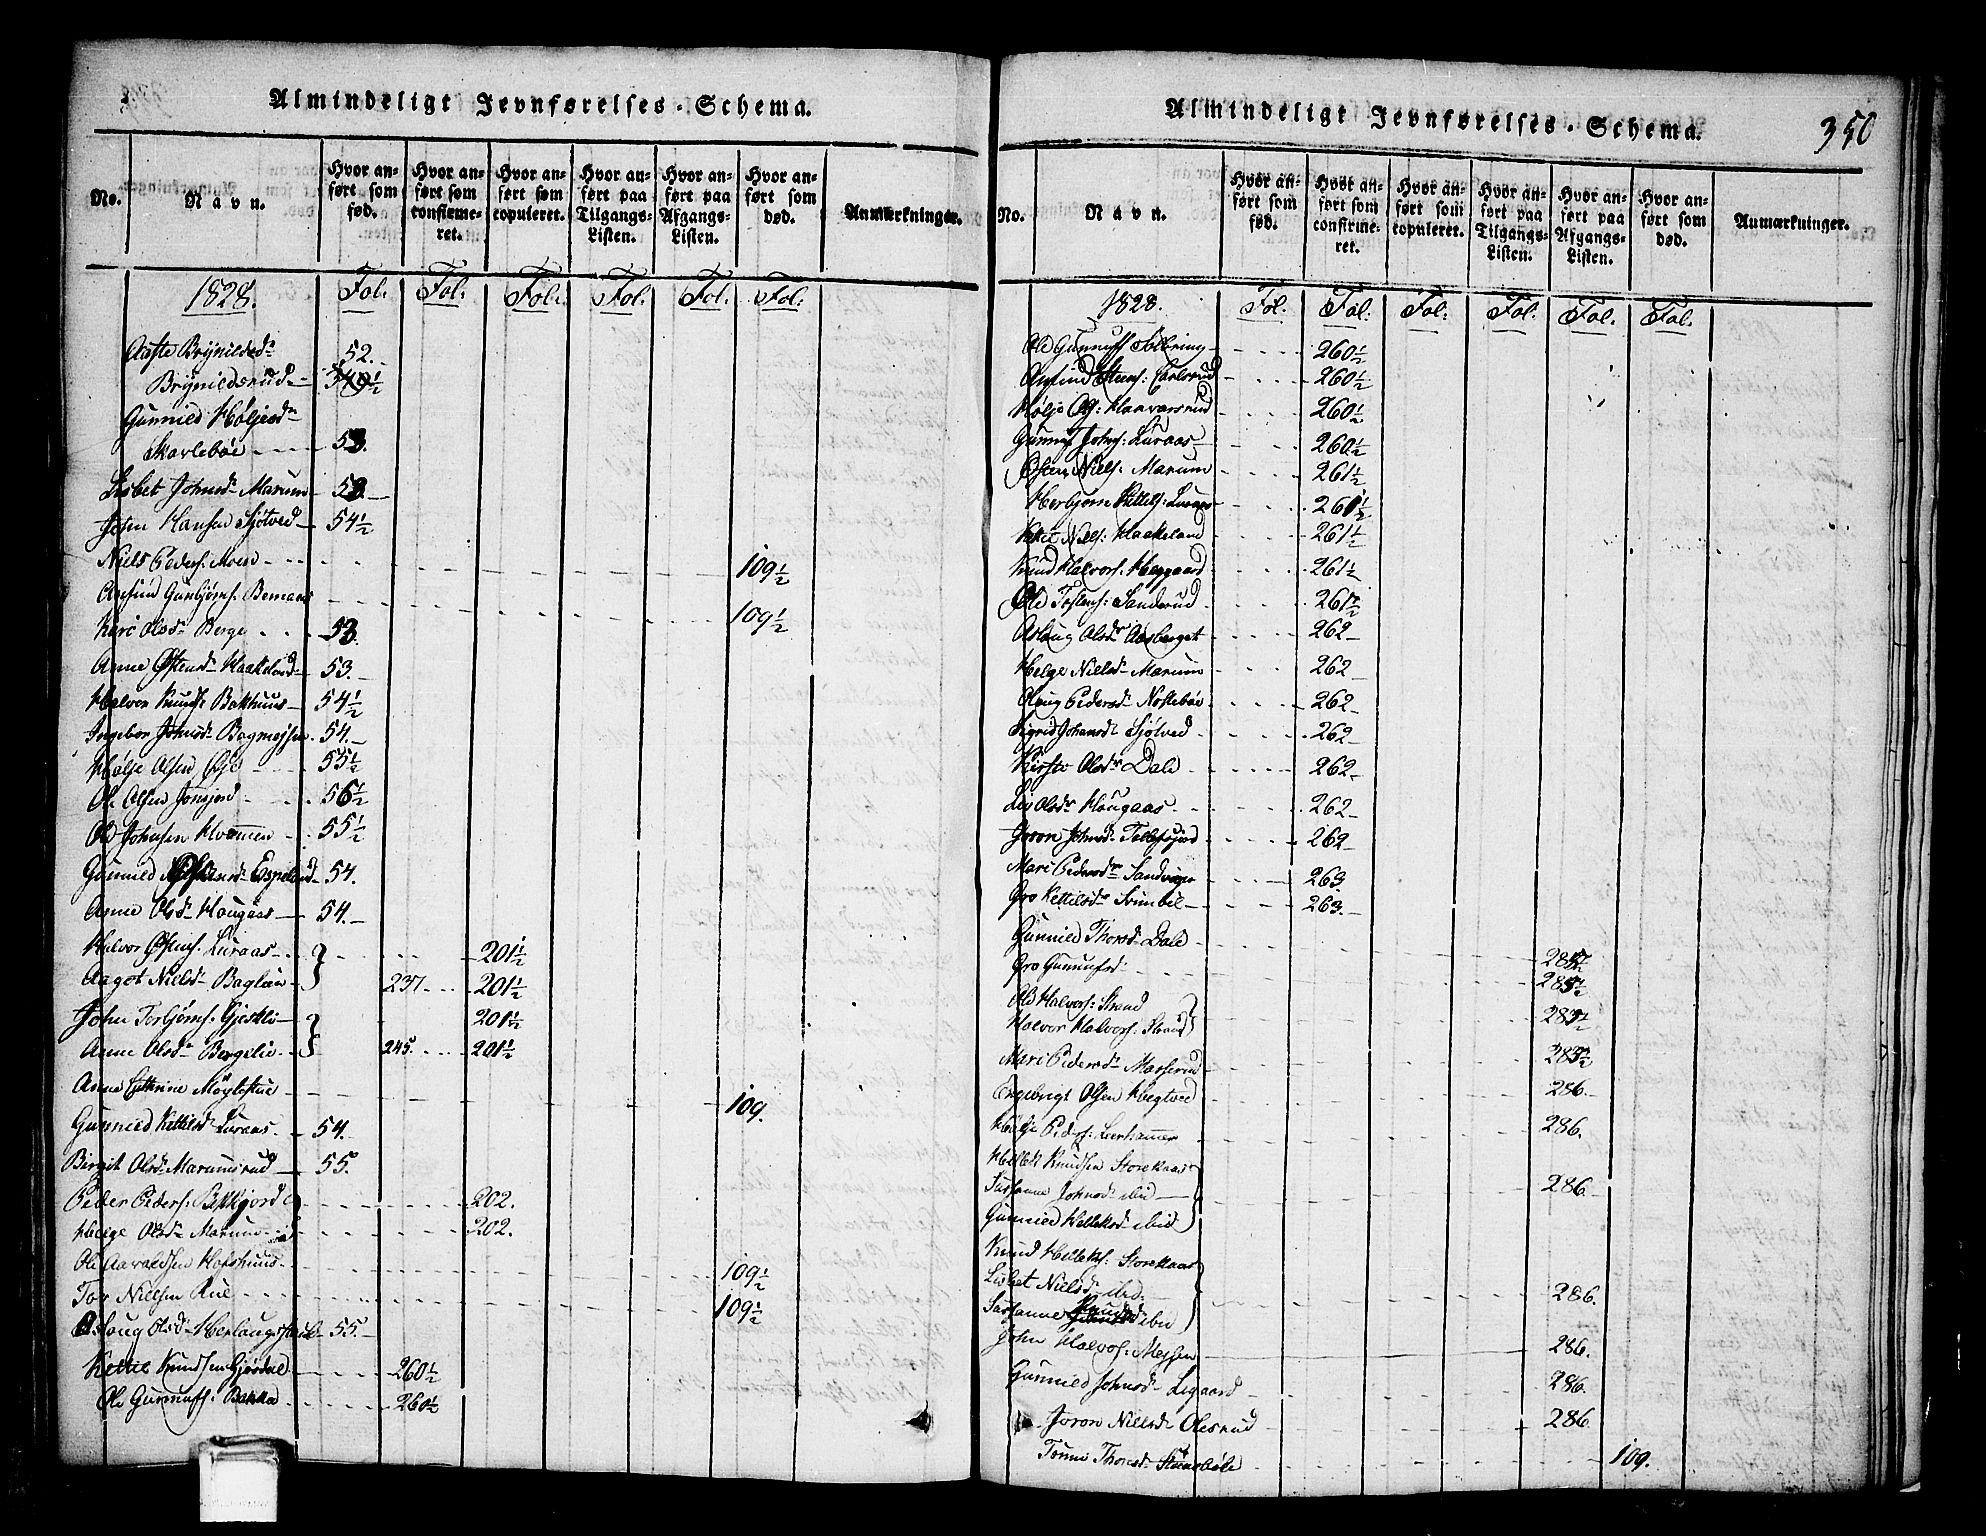 Almindeligt Jevnførelses-Schema.
No. Navn. Hvor anført som fød. Hvor anført som confirmeret. Hvor anført som copuleret. Hvor anført paa Tilgangs-Listen. Hvor anført paa Afgangs-Listen. Hvor anført som død. Anmærkninger.
1828. Fol: Fol: Fol: Fol: Fol: Fol:
Brynildsdr 52.
Brynildsrud
Gunnild Høljesdr
Skarlebøe 53.
Lisbet Johnsdr Marum 53.
John Hansen Sjøtved 54½
Niels Peders: Moen 109½
Anfind Gunbjørns: Bemaas 109½
Kari Olsdr Berge 53.
Anne Østensdr Haakeland 53.
Halvor Knuds: Bakhuus 54½
Ingebor Johnsdr Bagmejsen 54.
Hølje Olsen Øye 55½
Ole Olsen Jonsjord 56½
Ole Johnsen Hvammen 55½
Gunnild Espeland 54.
Anne Olsdr Hougaas 54.
Halvor Østens: Luraas 201½
Aaget Nielsdr Bagløen 237 201½
John Torbjørns: Gjestlie 201½
Anne Olsdr Bergelie 245. 201½
Anne Cathrine Møglestue 109.
Gunnild Kettilsdr Luraas 54.
Birgit Olsdr Marumsrud 55.
Peder Peders: Bakkjord 202.
Helge Olsdr Marum 202.
Ole Aaraldsen Hofshuus 109½
Tor Nielsen Rue 109½
Aslaug Olsdr Herlaugstuel 55.
Kettil Knudsen Gjøsdal 260½
Ole Gunnufs: Bakka 260½
Almindeligt Jevnførelses-Schema. 350
No. Navn. Hvor anført som fød. Hvor anført som confirmeret. Hvor anført som copuleret. Hvor anført paa Tilgangs-Listen. Hvor anført paa Afgangs-Listen. Hvor anført som død. Anmærkninger.
1828. Fol. Fol: Fol: Fol. Fol. Fol.
Ole Gunnufs: Solbring 260½
Anfind Stens: Carlsrud 260½
Hølje Ols: Haavarsrud 260½
Gunnuf Johns: Luraas 260½
Østen Niels: Marum 261½
Herbjørn Kittels: Luraas 261½
Kittil Niels: Haakeland 261½
Knud Halvors: Heggaard 261½
Ole Tostens: Sanderud 261½
Aslaug Olsdr Aasberget 262
Helge Nielsdr Marum 262
Olaug Pedersdr Nostebøe 262
Sigrid Johansdr Sjøtved 262
Kirsti Olsdr Dale 262
Liv Olsdr Hougaas 262
Joron Johnsdr Tollefsjord 262
Mari Pedersdr Sandvigen 263
Gro Kettilsdr Svimbil 263.
Gunnild Thorsdr Dale
Gro Gunnufsdr
Ole Halvors: Strand
Halvor Halvors: Strand
Mari Pedersdr Masserud
Engebrigt Olsen Hegtved 286.
Hølje Peders: Leerhammer 286.
Hellek Knudsen Storekaas
Susanne Johnsdr ibid 286
Gunnild Helleksdr ibid
Knud Helleks: Storekaas
Lisbet Nielsdr ibid 286.
Susanne Knudsdr ibid
John Halvors: Messen 286.
Gunnild Johnsdr Legaard 286.
Joron Nielsdr Olesrud 286.
Tonne Thorsdr 109.